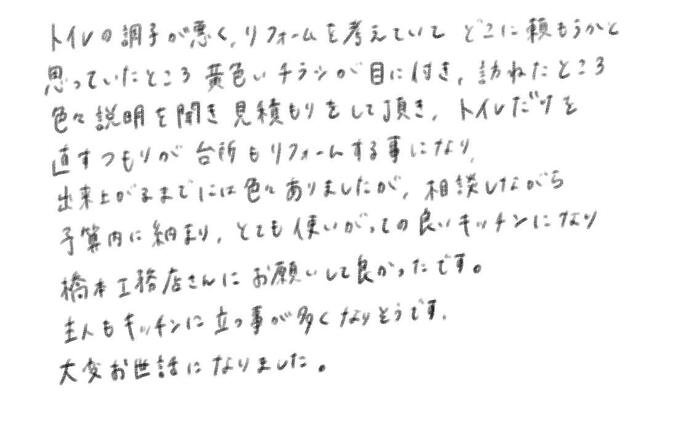 トイレの調子が悪く、リフォームを考えていて どこに頼もうかと
思っていたところ 黄色いチラシが目に付き、訪ねたところ
色々説明を聞き 見積もりをして頂き、トイレだけを
直すつもりが 台所もリフォームする事になり、
出来上がるまでには色々ありましたが、相談しながら
予算内に納まり、とても使いがっての良いキッチンになり
橋本工務店さんに お願いして良かったです。
主人もキッチンに立つ事が多くなりそうです。
大変お世話になりました。